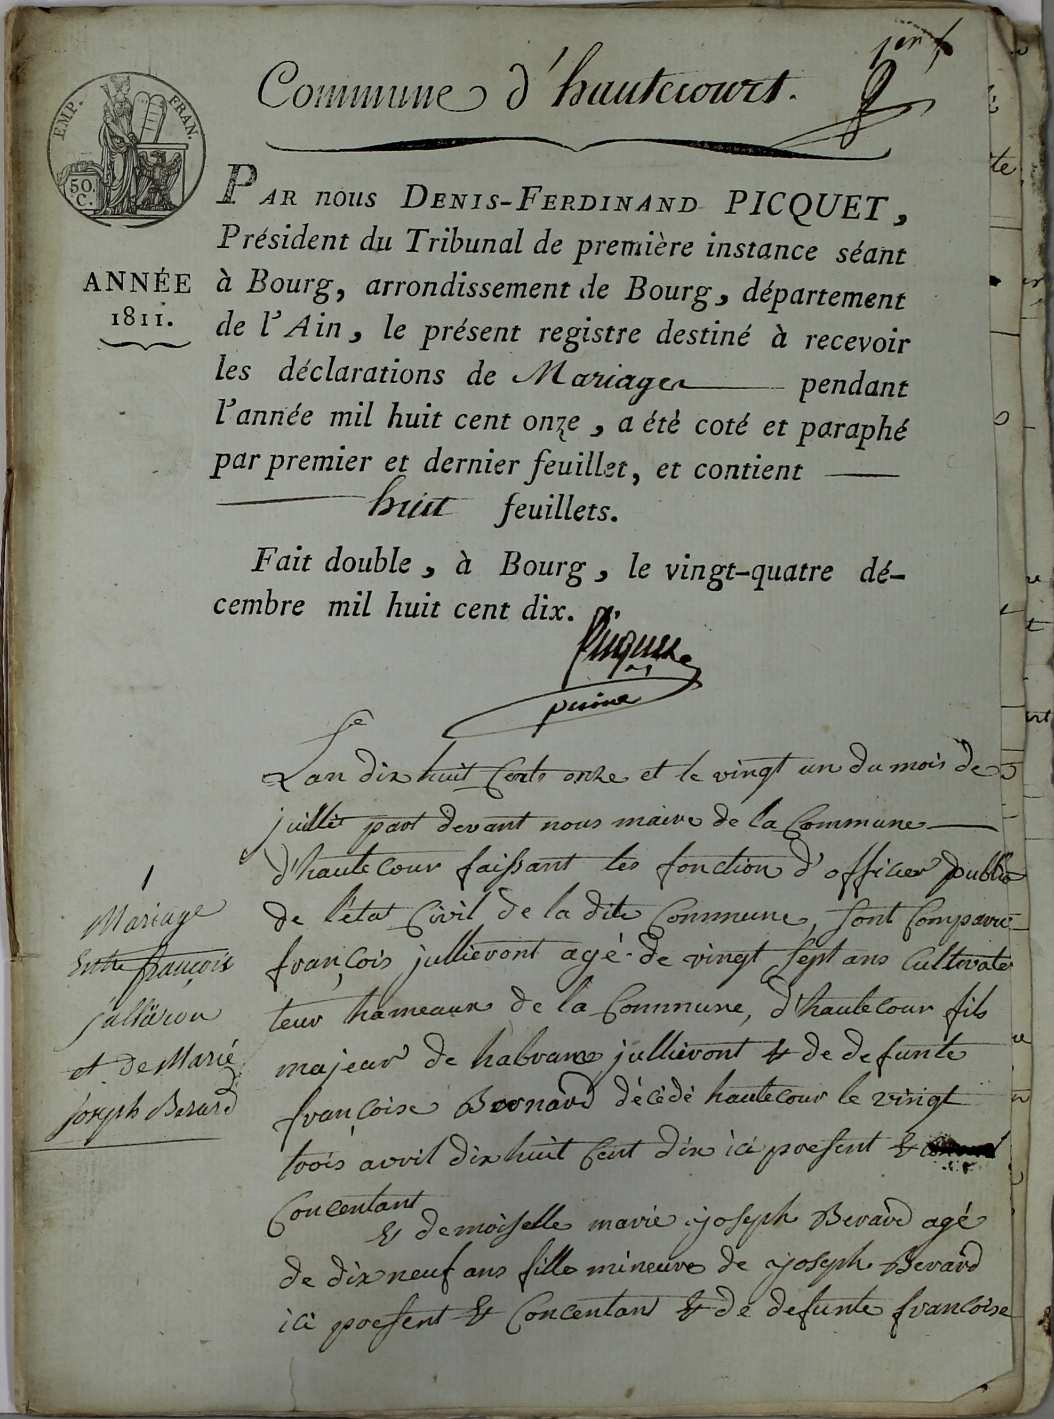 jer f
Commune d'hautecourt.
EMP. FRAN.
50.
C.
PAR nous DENIS-FERDINAND PICQUET,
Président du Tribunal de première instance séant
à Bourg, arrondissement de Bourg, département
de l'Ain, le présent registre destiné à recevoir
les déclarations de Mariages pendant
l'année mil huit cent onze, a étè coté et paraphé
par premier et dernier feuillet, et contient
huit feuillets.
Fait double, à Bourg, le vingt-quatre dé-
cembre mil huit cent dix.
ANNÉE
1811.
Picquet
Lan dix huit Cents onze et le vingt un du mois de
juillet part devant nous maire de la Commune
d'hautecour faissant les fonction d'officier public
de l'état Civil de la dite Commune, sont Comparu
françois jullieront agé de vingt sept ans Cultivate
teur hameaux de la Commune, d'hautecour fils
majeur de jullieront & de defunte
françoise Bernard décédé hautecour le vingt
trois avril dix huit Cent dix ici present &
Concentant
& demoiselle marie joseph Berard agé
de dix neuf ans fille mineure de joseph Berard
ici present & Concentant & de defunte francoise
1
Mariage
Entre françois
jullieron
et de Marie
joseph Berard